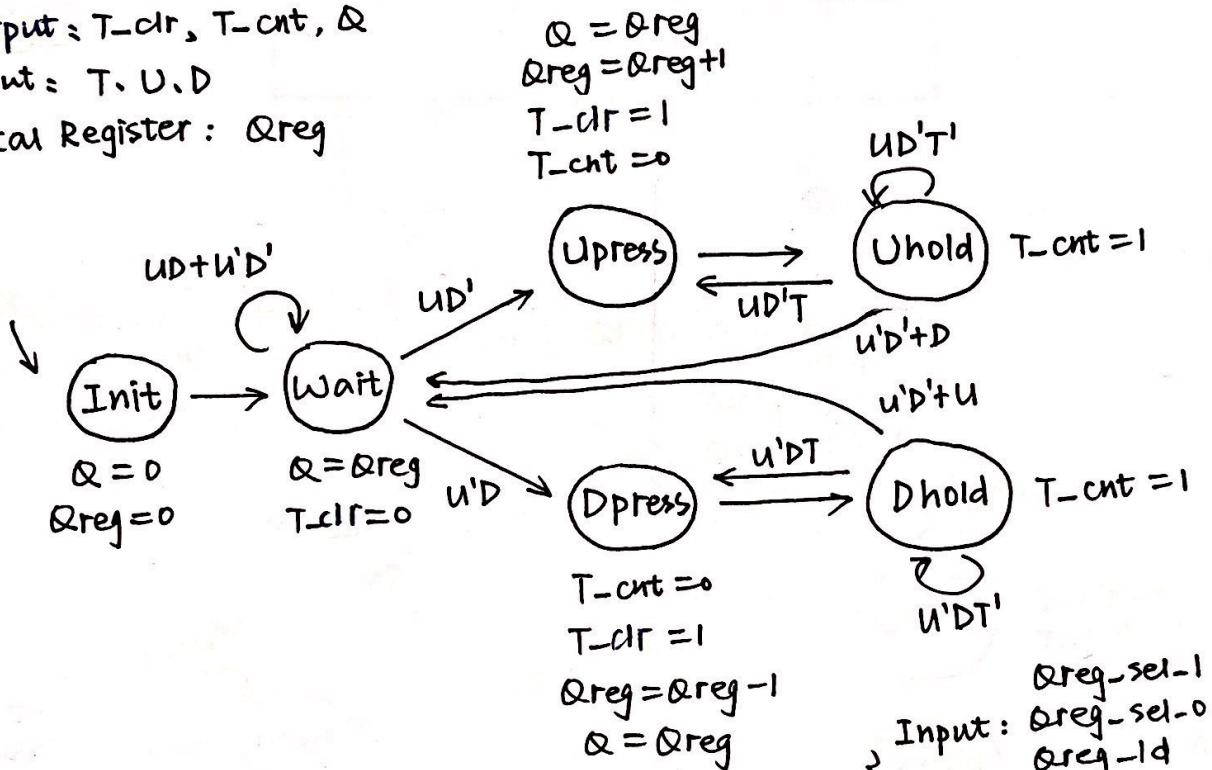 put: T_clr, T_cnt, Q
ut: T, U, D
cal Register: Qreg
Q = Qreg
Qreg = Qreg+1
T_clr = 1
T_cnt = 0
UD'T'
Upress
Uhold
T_cnt = 1
UD+U'D'
UD'
UD'T
U'D'+D
Init
Wait
U'D'+U
Q = 0
Qreg=0
Q = Qreg
T_clr=0
U'D
U'DT
Dpress
Dhold
T_cnt = 1
T_cnt = 0
T_clr = 1
Qreg = Qreg-1
Q = Qreg
U'DT'
Input: Qreg_sel_1
Qreg_sel_0
Qreg_ld